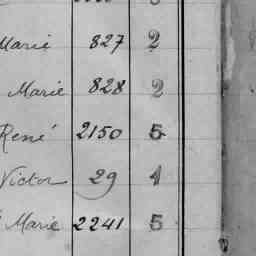 Marie 827 2
Marie 828 2
René 2150 5
Victor 29 1
Marie 2241 5